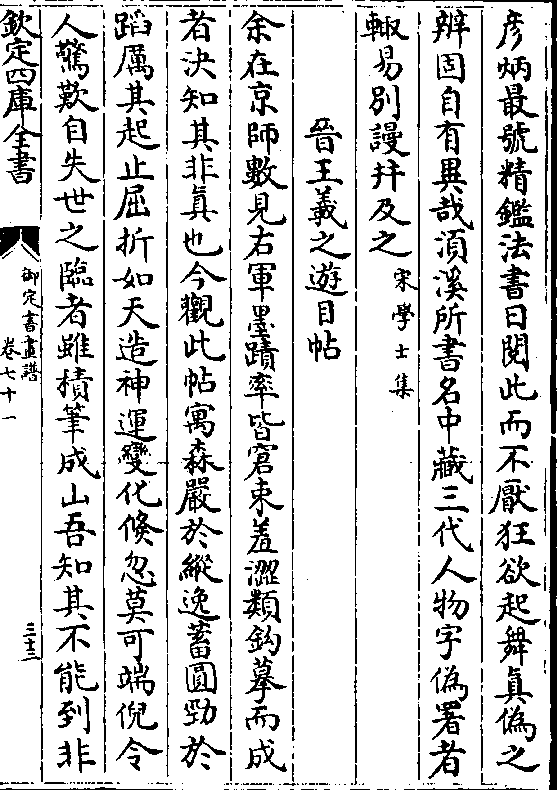 彦炳最號精鑑法書日閱此而不厭狂欲起舞真偽之
辨固自有異哉湏溪所書名中藏三代人物字偽署者
輙易别謾幷及之 宋學士集
晉王羲之遊目帖
余在京師數見右軍墨蹟率皆窘束羞澀類鈎摹而成
者決知其非真也今觀此帖寓森嚴於縱逸蓄圓勁於
蹈厲其起止屈折如天造神運變化倐忽莫可端倪令
人驚歎自失世之臨者雖積筆成山吾知其不能到非
欽定四庫全書
御定書畫譜
卷七十一
三十三